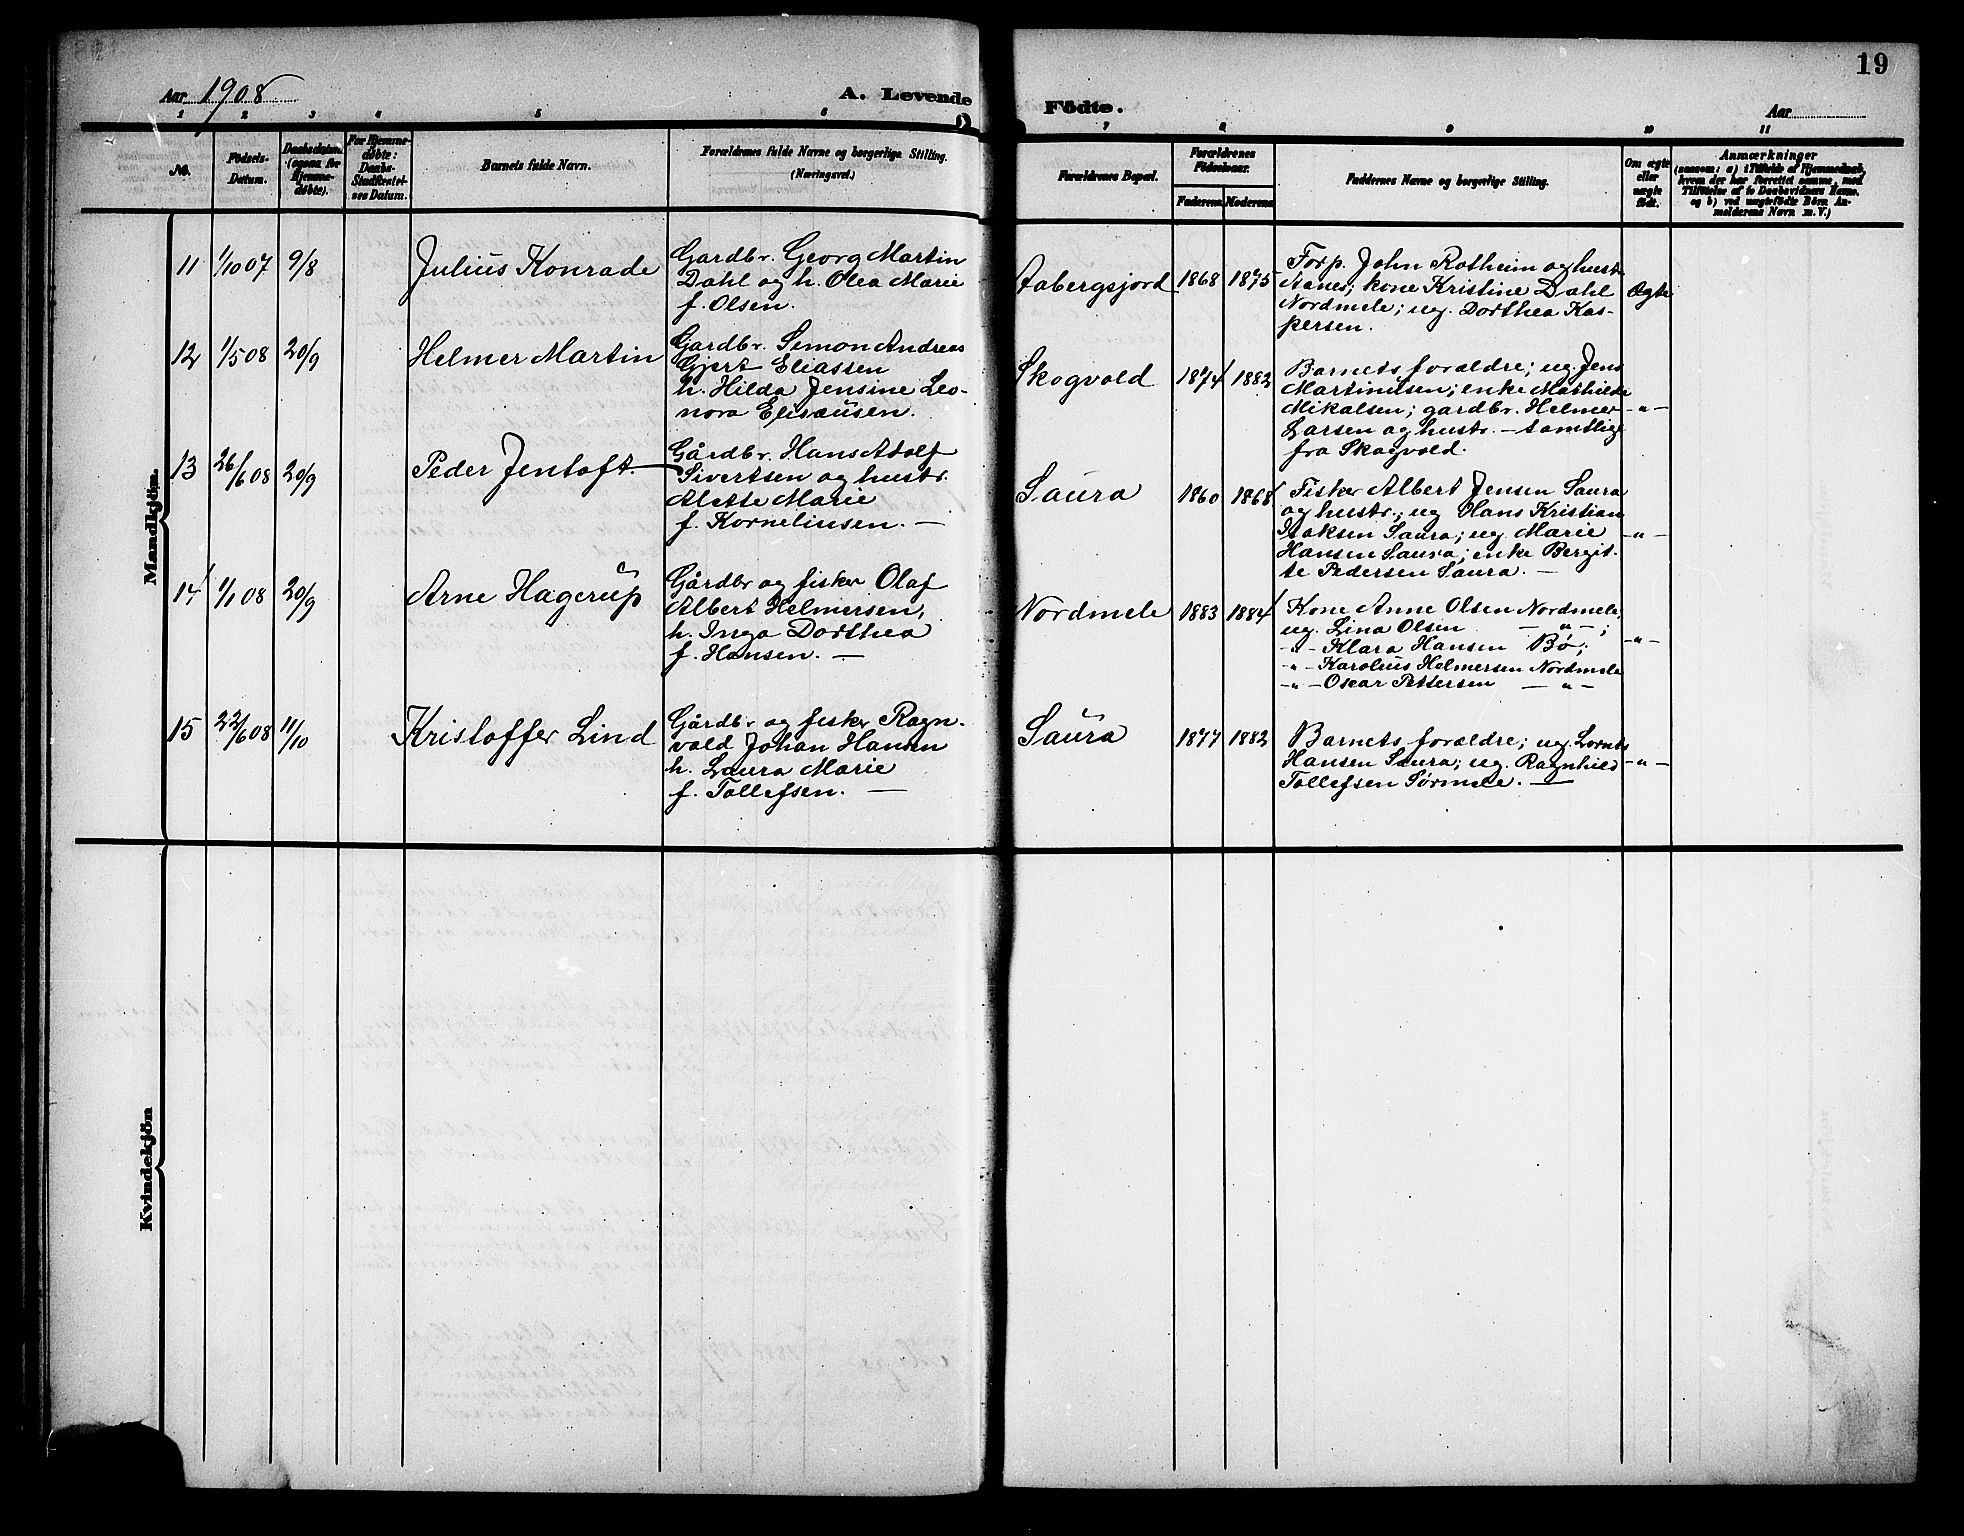 19
Aar 1908
A. Levende
Födte.
Aar
1 2 3 4 5 6 7 8 9 10 11
No.
Födsels-
Datum.
Daabsdatum
(ogsaa for
Hjemme-
döbte).
For Hjemme-
döbte:
Daabs-
Stadfæstel-
ses Datum.
Barnets fulde Navn.
Forældrenes fulde Navne og borgerlige Stilling.
(Næringsvei.)
Forældrenes Bopæl.
Forældrenes
Födselsaar.
Faderens
Moderens
Faddernes Navne og borgerlige Stilling.
Om ægte
eller
uægte
födt.
Anmærkninger
(saasom: a) i Tilfælde af Hjemmedaab,
hvem der har forrettet samme, med
Tilföielse af to Daabsvidners Navne.
og b) ved uægtefödte Börn An-
melderens Navn m. V.)
Mandkjön.
11 1/10 07 9/8 Julius Konrade
Gardbr. Georg Martin
Dahl og h. Olea Marie
f. Olsen.
Aabergsjord 1868 1875
Forp. John Rotheim og hustr.
Aanes; kone Kristine Dahl
Nordmele; ug. Dorthea Kas-
persen.
Ægte
12 1/5 08 20/9 Helmer Martin
Gardbr. Simon Andreas
Gjert Eliassen
h. Hilda Jensine Leo-
nora Elisæusen.
Skogvold 1874 1882
Barnets forældre; ug. Jens
Martinussen; enke Mathilde
Mikalsen; gardbr. Helmer
Larsen og hustr. – samtlige
fra Skogvold.
-"-
13 26/6 08 20/9 Peder Jentoft
Gårdbr. Hans Adolf
Sivertsen og hustr.
Alette Marie
f. Korneliusen. —
Saura 1860 1868
Fisker Albert Jensen Saura
og hustr.; ug Hans Kristian
Isaksen Saura; ug. Marie
Hansen Saura; enke Bergit-
te Pedersen Saura. —
-"-
14 1/1 08 20/9 Arne Hagerup
Gårdbr og fisker Olaf
Albert Helmersen,
h. Inga Dorthea
f. Hansen. —
Nordmele 1883 1884
Kone Anne Olsen Nordmele;
ug. Lina Olsen -"-;
-"- Klara Hansen Bø;
-"- Karolius Helmersen Nordmele
-"- Oskar Pettersen -"-
-"-
15 22/6 08 11/10 Kristoffer Lind
Gårdbr og fisker Ragn-
vald Johan Hansen
h. Laura Marie
f. Tollefsen. —
Saura 1877 1882
Barnets forældre; ug. Lornts
Hansen Saura; ug. Ragnhild
Tollefsen Sørmele. —
-"-
Kvindekjön